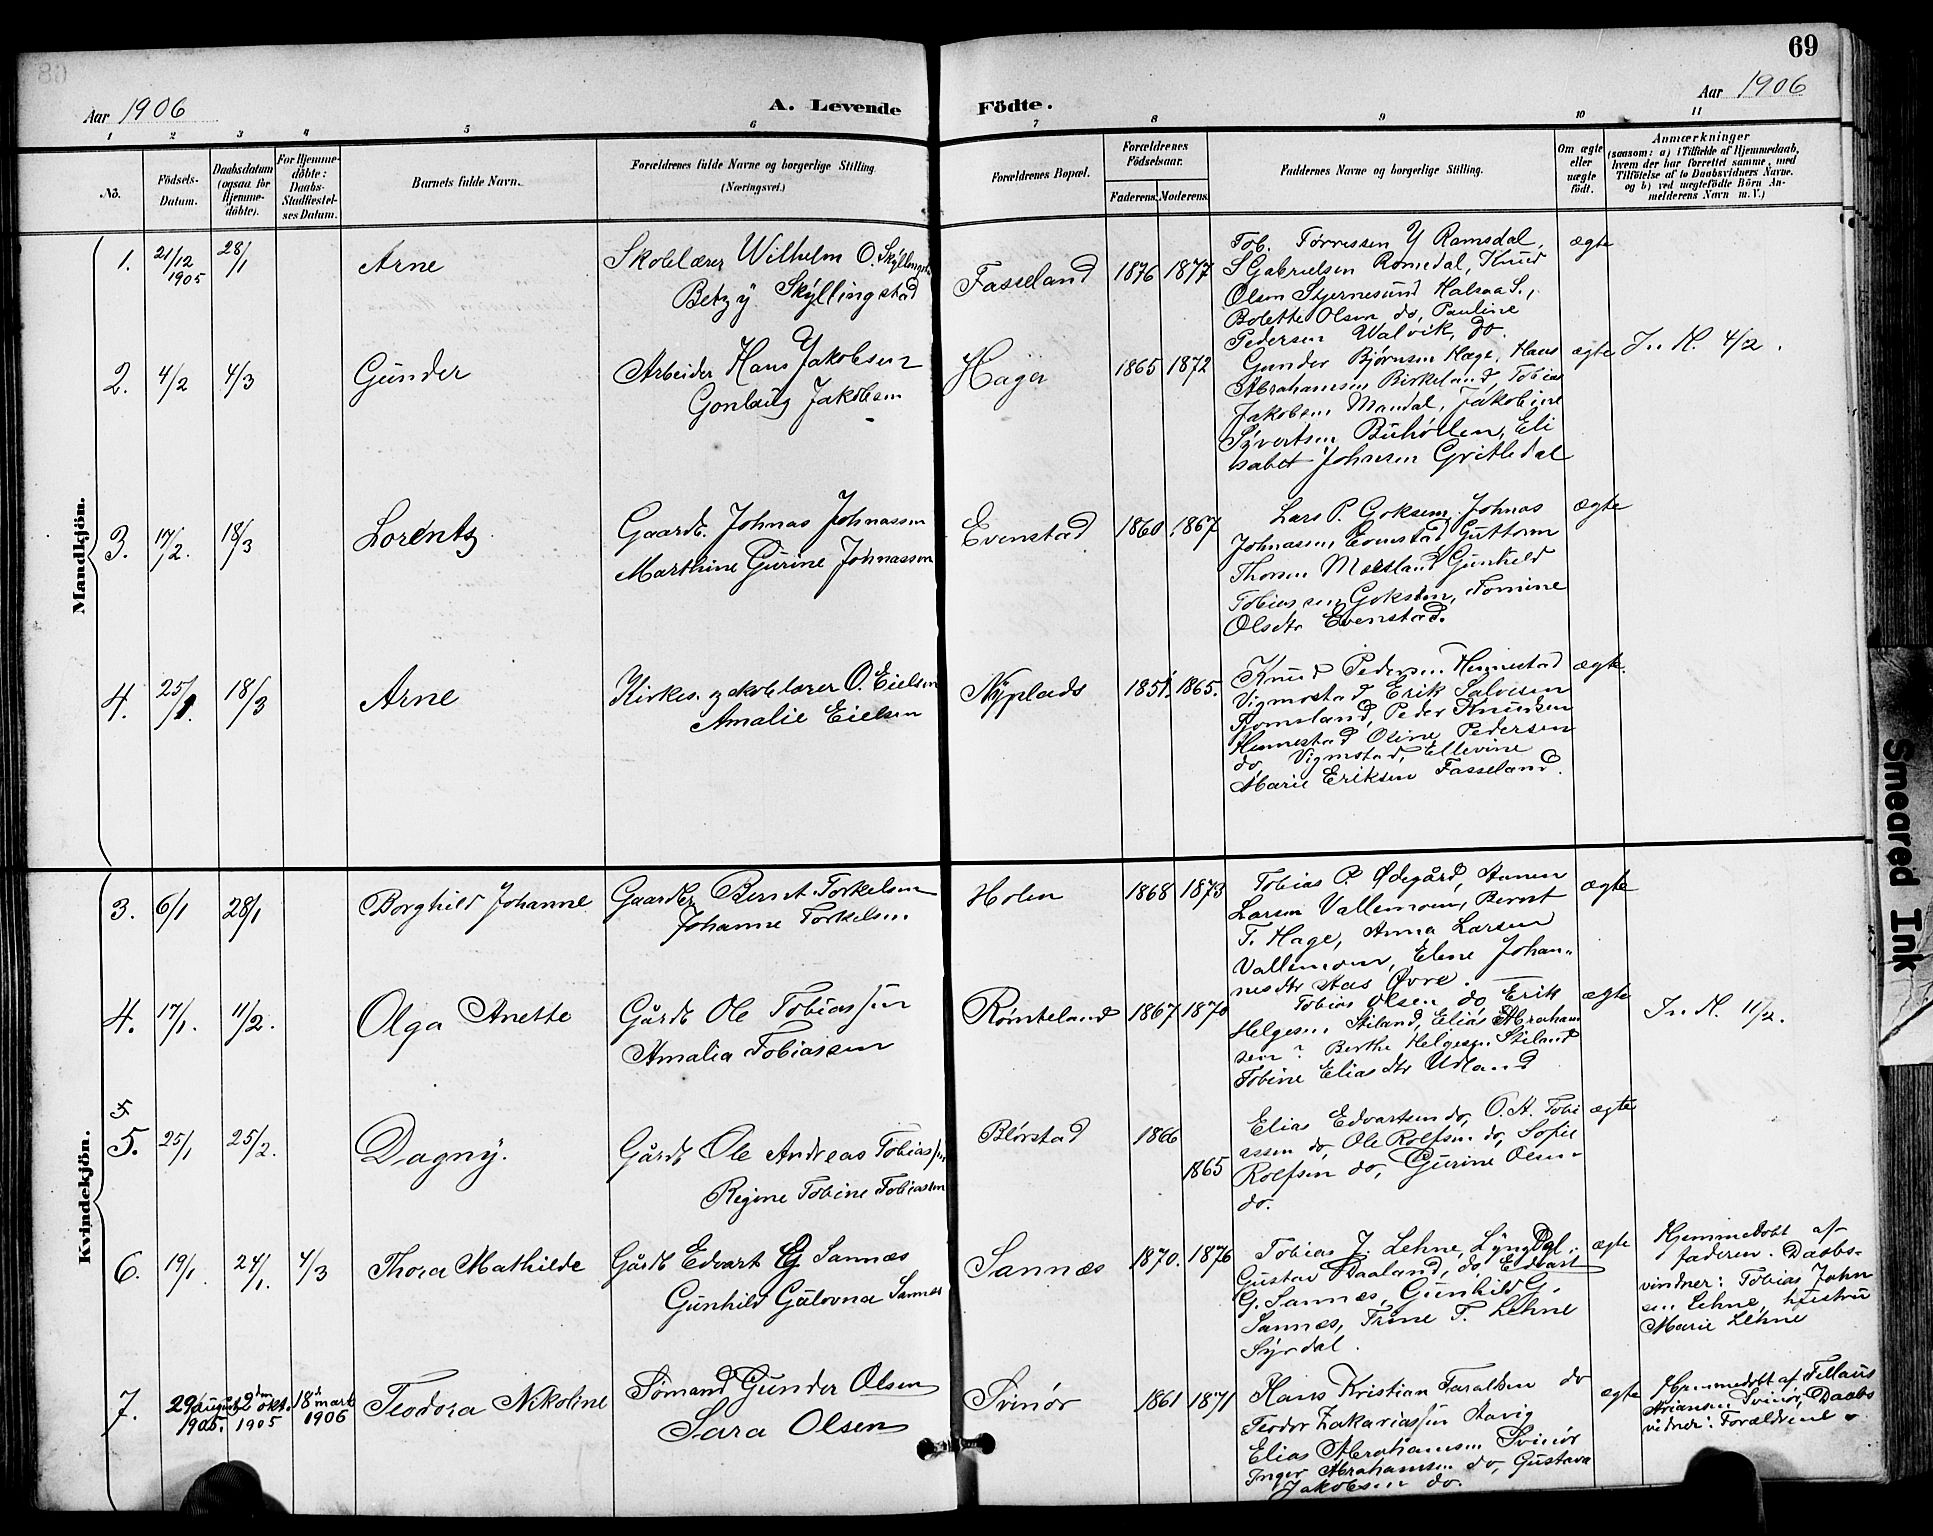 69
Aar 1906
A. Levende Födte.
Aar 1906
1 2 3 4 5 6 7 8 9 10 11
No.
Födsels-Datum.
Daabsdatum (ogsaa for Hjemme-döbte).
For Hjemme-döbte: Daabs-Stadfæstel-ses Datum.
Barnets fulde Navn.
Forældrenes fulde Navne og borgerlige Stilling. (Næringsvei.)
Forældrenes Bopæl.
Forældrenes Födselsaar.
Faderens. Moderens.
Faddernes Navne og borgerlige Stilling.
Om ægte eller uægte födt.
Anmærkninger
(saasom: a) i Tilfælde af Hjemmedaab,
hvem der har forrettet samme, med
Tilföielse af to Daabsvidners Navne.
og b) ved uægtefödte Börn An-
melderens Navn m. V.)
Mandkjön.
1. 21/12 1905 28/1 Arne
Skolelærer Wilhelm O. Skyllingstad
Betzy Skyllingstad
Fasseland 1876 1877
Tob. Tørressen Y Ramsdal,
S Gabrielsen Romedal, Knud
Olsen Stjernesund Halsaa S.,
Bolette Olsen do, Pauline
Pedersen Walvik, do.
ægte
2. 4/2 4/3 Gunder
Arbeider Hans Jakobsen
Gonlaug Jakobsen
Häger 1865 1872
Gunder Bjørnsen Hæge, Hans
Abrahamsen Birkeland, Tobias
Jakobsen Mandal, Jakobine
Sivertsen Buhölen, Eli
sabet Johnsen Gritledal
ægte
I. K. 4/2.
3. 17/2. 18/3 Lorents
Gaardb. Johnas Johnassen
Marthine Gurine Johnassen
Evenstad 1860. 1867
Lars P. Goksem, Johnas
Johnassen Evenstad Guttorm
Thorsen Moesland Gunhild
Tobiassen Goksem, Tomine
Olsdtr Evenstad.
ægte
4. 25/1. 18/3 Arne
Kirkes. og skolelærer O. Eielsen
Amalie Eielsen
Nyplads 1851. 1865.
Knud Pedersen Hennestad
Vigmostad, Erik Salvesen
Fjomsland, Peder Knudsen
Hennestad Oline Pedersen
do Vigmostad, Ellevine
Marie Eriksen Fasseland.
ægte.
Kvindekjön.
3. 6/1 28/1 Borghild Johanne
Gaardbr Bernt Torkelsen
Johanne Torkelsen
Holen 1868 1873
Tobias P. Ødegård, Annen
Larsen Vallemoen, Bernt
T. Hage, Anna Larsen
Vallemoen, Elene Johan-
nesdtr Aas Øvre.
ægte
4. 17/1. 11/2. Olga Anette
Gårdb Ole Tobiassen
Amalia Tobiassen
Römteland 1867 1870
Tobias Olsen do, Erik
Helgesen Stiland, Elias Abraham
sen? Berthe Helgesen Stiland
Tobine Eliasdtr Udland
ægte
I. K. 11/2.
5
5. 25/1 25/2. Dagny.
Gårdb Ole Andreas Tobiassen
Regine Tobine Tobiassen
Blørstad 1866 1865
Elias Edvartsen do, O. A. Tobi
assen do, Ole Rolfsen do, Sofie
Rolfsen do, Gurine Olsen
do.
ægte
6. 19/1. 24/1. 4/3 Thora Mathilde
Gårdb Edvart G Sannæs
Gunhild Gulovna Sannes
Sannæs 1870. 1876
Tobias J. Lehne, Lyngdal.
Gustav Daaland, do, Edvart
G. Sannæs, Gunhild G.
Sannæs, Trine T. Lehne
Syrdal.
ægte
Hjemmedøbt af
faderen. Daabs-
vindner: Tobias John
sen Lehne, hustru
Marie Lehne
7. 29 august 1905. 2den okt. 1905 18d marts 1906 Teodora Nikoline
Sømand Gunder Olsen
Sara Olsen
Svinör 1861 1871
Hans Kristian Taraldsen do
Teodor Zakariassen Aavig
Elias Abrahamsen Svinör
Inger Abrahamsen do, Gustava
Jakobsen do.
ægte
Hjemmedøbt af Tellaus
Ariansen Svinör, Daabs
vidner: Forældrene.
Smeared Ink